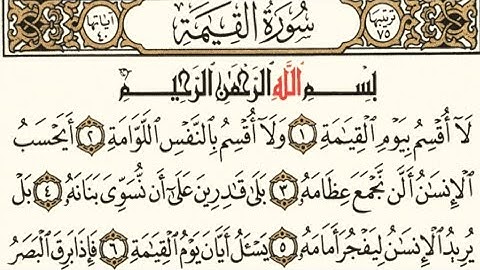 ترتيبها ٧٥ سُورَةُ القِيَٰمَةِ آياتها ٤٠
بِسْمِ اللَّهِ الرَّحْمَٰنِ الرَّحِيمِ
لَآ أُقْسِمُ بِيَوْمِ الْقِيَٰمَةِ ١ وَلَآ أُقْسِمُ بِالنَّفْسِ اللَّوَّامَةِ ٢ أَيَحْسَبُ
الْإِنسَٰنُ أَلَّن نَّجْمَعَ عِظَامَهُ ٣ بَلَىٰ قَٰدِرِينَ عَلَىٰٓ أَن نُّسَوِّىَ بَنَانَهُ ٤ بَلْ
يُرِيدُ الْإِنسَٰنُ لِيَفْجُرَ أَمَامَهُ ٥ يَسْـَٔلُ أَيَّانَ يَوْمُ الْقِيَٰمَةِ ٦ فَإِذَا بَرِقَ الْبَصَرُ